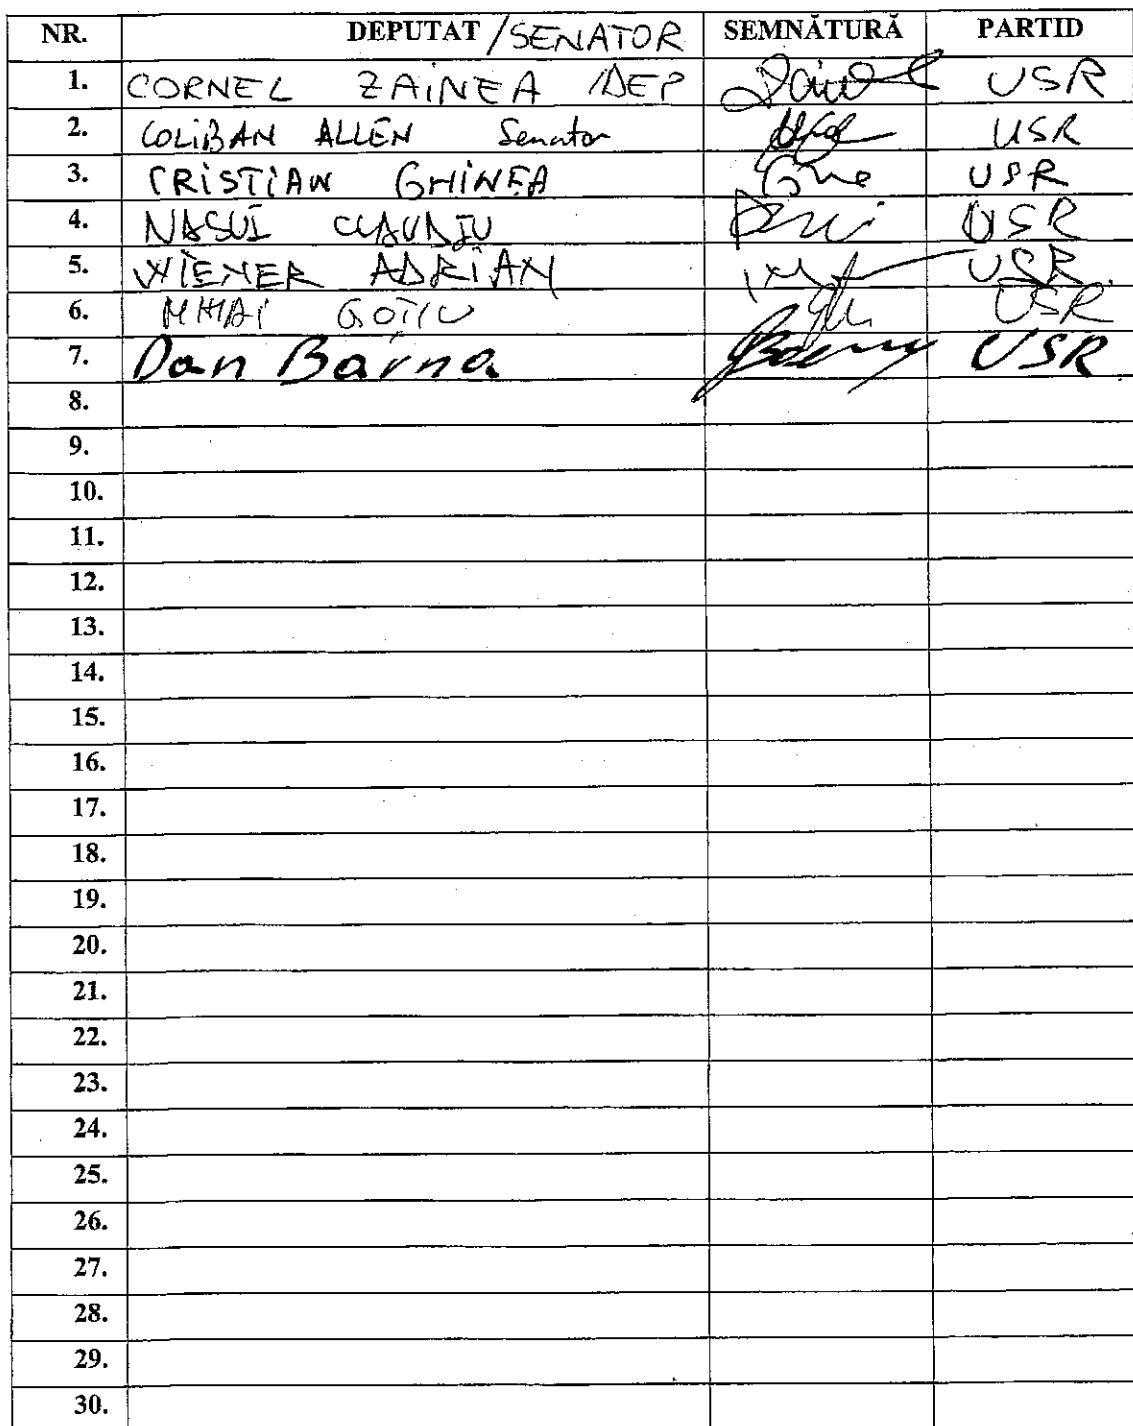 NR. DEPUTAT /SENATOR SEMNĂTURĂ PARTID
1. CORNEL ZAINEA /DEP USR
2. COLIBAN ALLEN Senator USR
3. CRISTIAN GHINEA USR
4. NASUI CLAUDIU USR
5. WIENER ADRIAN USR
6. MIHAI GOȚIU USR
7. Dan Barna USR
8.
9.
10.
11.
12.
13.
14.
15.
16.
17.
18.
19.
20.
21.
22.
23.
24.
25.
26.
27.
28.
29.
30.